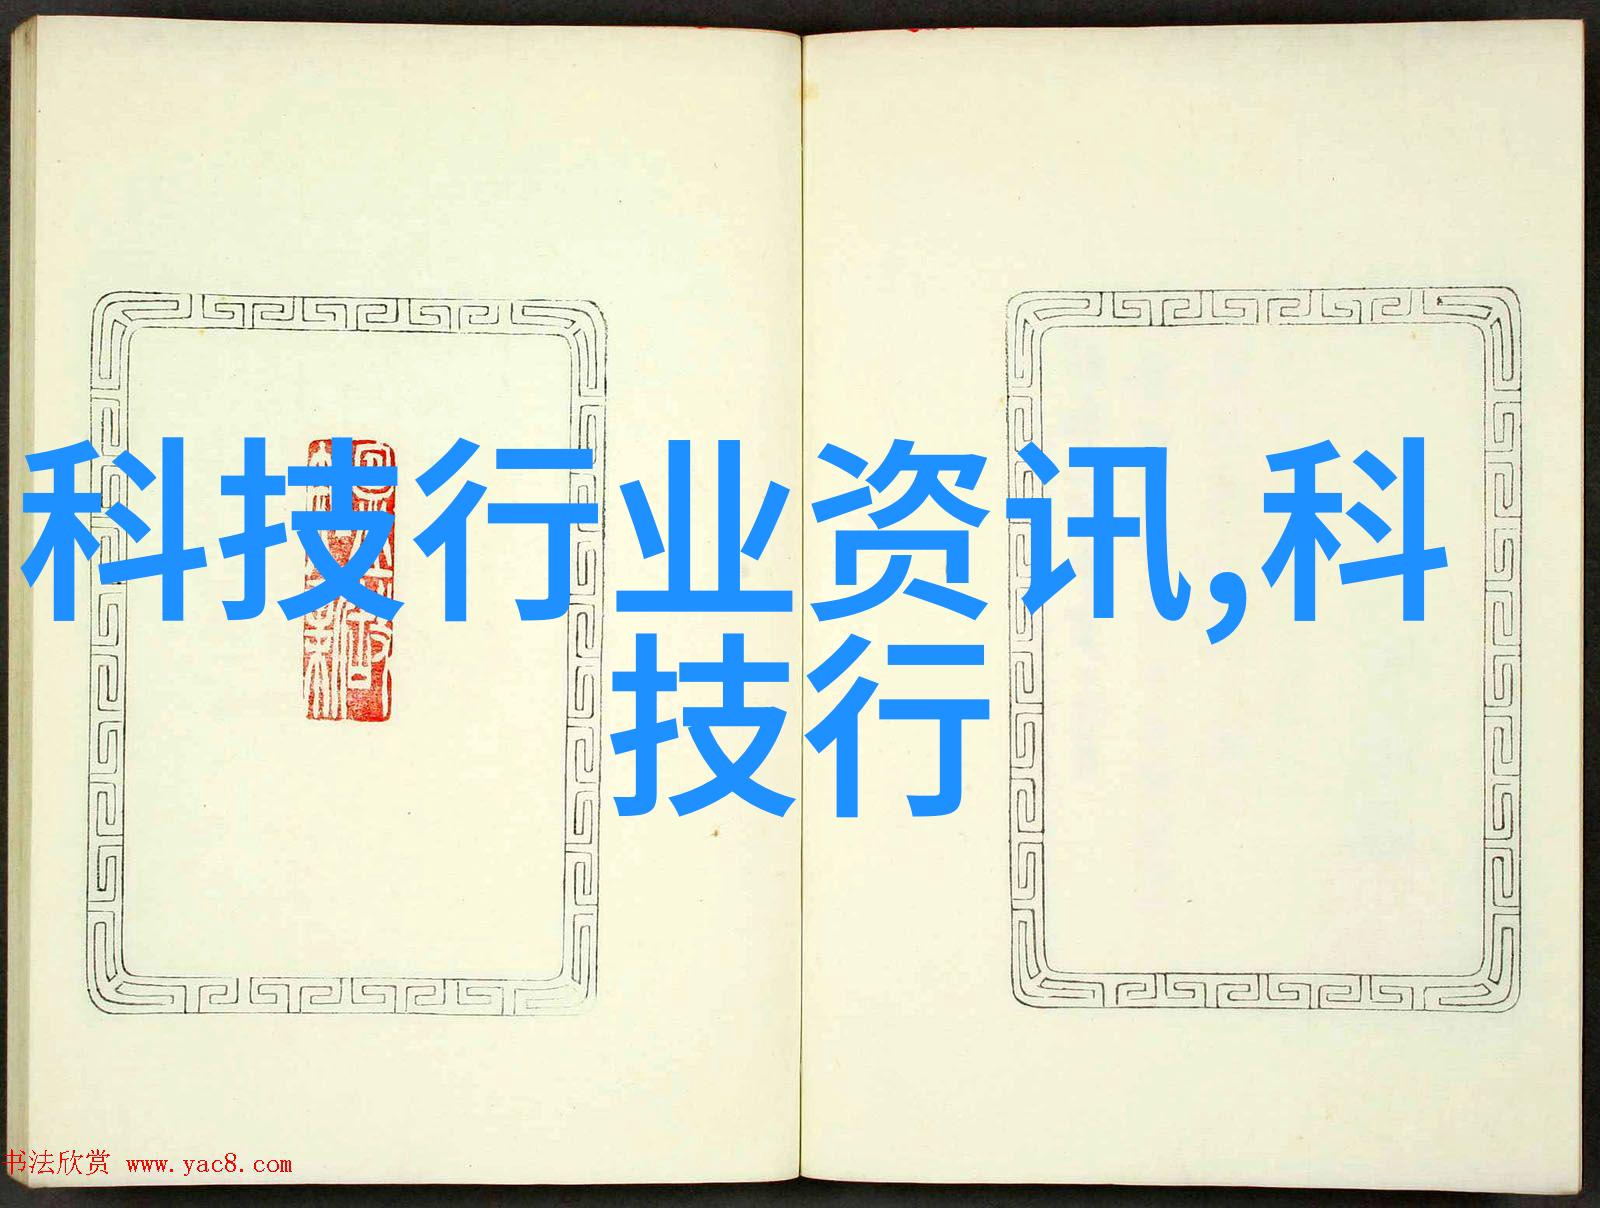 科技行业资讯,科
技行
书法欣赏 www.yac8.com